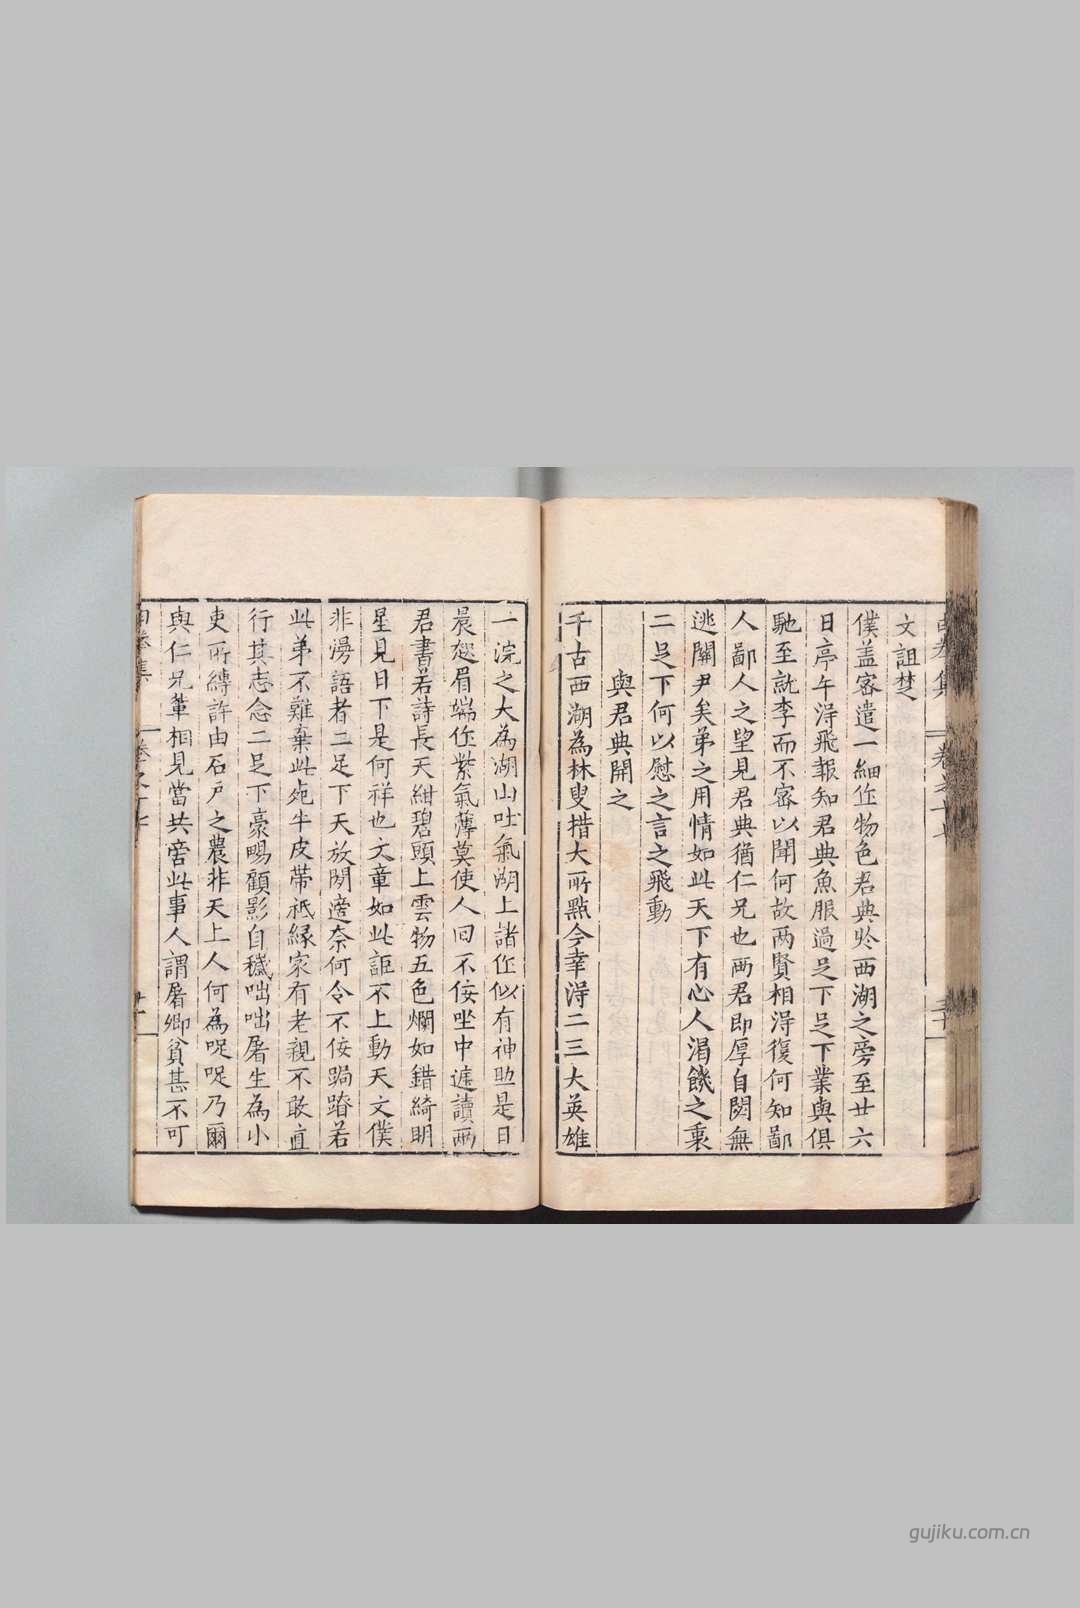 文詛楚
僕盖密遣一細作物色君典扵西湖之旁至廿六
日亭午淂飛報知君典魚服過足下足下業與俱
馳至就李而不密以聞何故两賢相淂復何知鄙
人鄙人之望見君典猶仁兄也两君即厚自閟無
逃關尹矣弟之用情如此天下有心人渴饑之秉
二足下何以慰之言之飛動
與君典開之
千古西湖為林叟措大所㸃今幸淂二三大英雄
一浣之大為湖山吐氣湖上諸作似有神助是日
晨起眉端作紫氣薄莫使人囘不佞坐中遽讀两
君書若詩長天紺碧頭上雲物五色爛如錯綺明
星見日下是何祥也文章如此詎不上動天文僕
非謾語者二足下天放閒適奈何令不佞跼蹐若
此弟不難棄此㐌牛皮帶祗緣家有老親不敢直
行其志念二足下豪暢顧影自穢咄咄屠生為小
吏所縳許由石戸之農非天上人何為哫哫乃爾
與仁兄軰相見當共啇此事人謂屠卿貧甚不可
白榆集
卷之十七